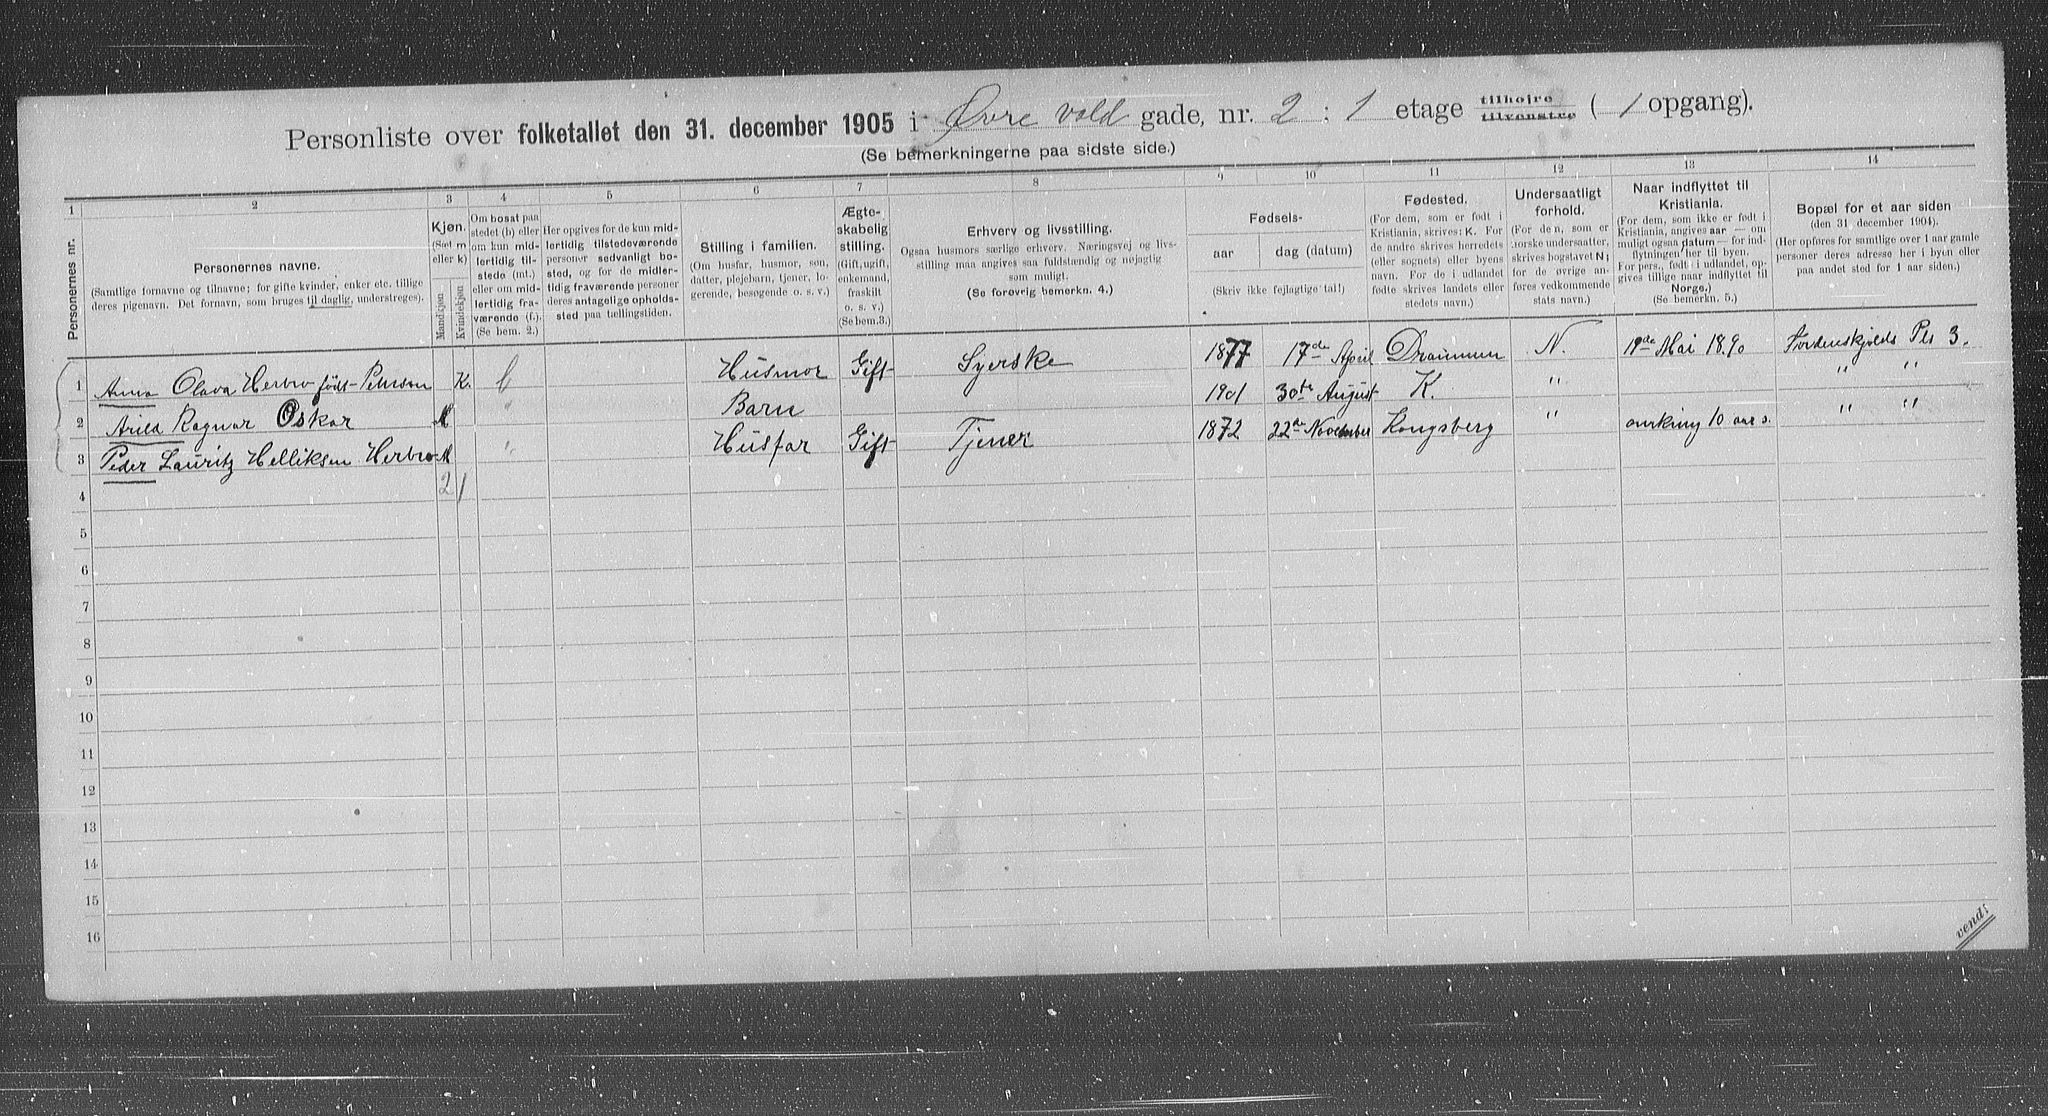 Personliste over folketallet den 31. december 1905 i Øvre vold gade, nr. 2 : 1 etage tilhøjre tilvenstre ( 1 opgang).
(Se bemerkningerne paa sidste side.)
1 2 3 4 5 6 7 8 9 10 11 12 13 14
Personernes nr.
Personernes navne.
(Samtlige fornavne og tilnavne; for gifte kvinder, enker etc. tillige
deres pigenavn. Det fornavn, som bruges til daglig, understreges).
Kjøn.
(Sæt m
eller k)
Mandkjøn
Kvindekjøn
Om bosat paa
stedet (b) eller
om kun mid-
lertidig til-
stede (mt.)
eller om mid-
lertidig fra-
værende (f.).
(Se bem. 2.)
Her opgives for de kun mid-
lertidig tilstedeværende
personer sedvanligt bo-
sted, og for de midler-
tidig fraværende personer
deres antagelige opholds-
sted paa tællingstiden.
Stilling i familien.
(Om husfar, husmor, søn,
datter, plejebarn, tjener, lo-
gerende, besøgende o. s. v.)
Ægte-
skabelig
stilling.
(Gift, ugift,
enkemand,
fraskilt
o. s. v.)
(Se bem. 3.)
Erhverv og livsstilling.
Ogsaa husmors særlige erhverv. Næringsvej og livs-
stilling maa angives saa fuldstændig og nøjagtig
som muligt.
(Se forøvrig bemerkn. 4.)
Fødsels-
aar dag (datum)
(Skriv ikke fejlagtige tal!)
Fødested.
(For dem, som er født i
Kristiania, skrives: K. For
de andre skrives herredets
(eller sognets) eller byens
navn. For de i udlandet
fødte skrives landets eller
stedets navn.)
Undersaatligt
forhold.
(For den, som er
norske undersaatter,
skrives bogstavet N;
for de øvrige an-
føres vedkommende
stats navn.)
Naar indflyttet til
Kristiania.
(For dem, som ikke er født i
Kristiania, angives aar — om
muligt ogsaa datum — for ind-
flytningen her til byen.
For pers., født i udlandet, op-
gives tillige naar indflyttet til
Norge.)
(Se bemerkn. 5.)
Bopæl for et aar siden
(den 31. december 1904).
(Her opføres for samtlige over 1 aar gamle
personer deres adresse her i byen eller
paa andet sted for 1 aar siden.)
1 Anna Olava Herbro født Petersen K. b Husmor Gift Syerske 1877 17de April Drammen N. 19de Mai 1890 Tordenskjolds Pls 3.
2 Arild Ragnar Oskar M " Barn 1901 30te August K. " " "
3 Peder Lauritz Helliksen Herbro M " Husfar Gift Tjener 1872 22de November Kongsberg " omkring 10 aar s. " "
4 2 1
5
6
7
8
9
10
11
12
13
14
15
16
vend!